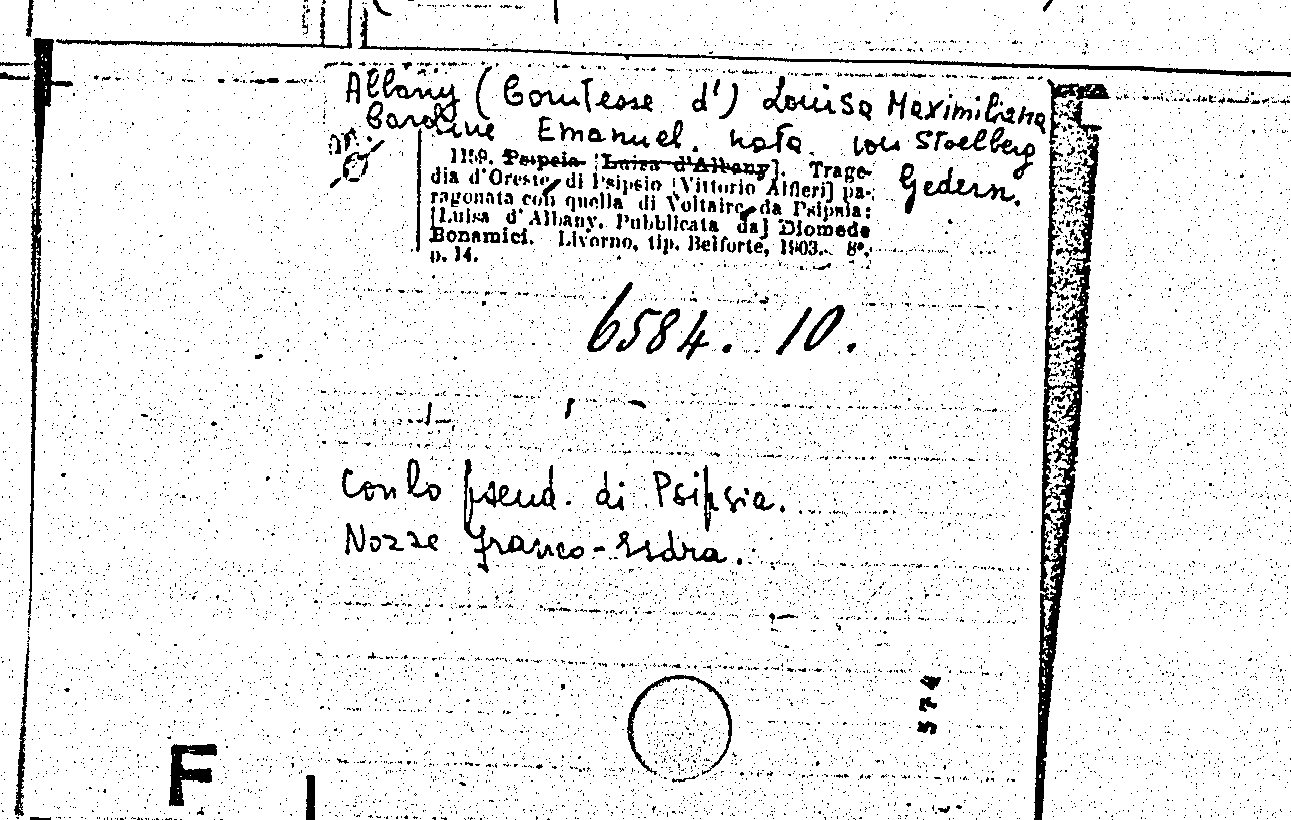 Albany (Comtesse d') Louisa Maximiliana
Caroline Emanuel. nata. von Stoelberg
Gedern.
1159. Psipsia [Luisa d'Albany]. Trage-
dia d'Oreste, di Psipsio [Vittorio Alfieri] pa-
ragonata con quella di Voltaire, da Psipsia:
[Luisa d'Albany. Pubblicata da] Diomede
Bonamici. Livorno, tip. Belforte, 1903. 8°,
p. 14.
6584. 10.
Con lo pseud. di Psipsia.
Nozze Franco-
574
F